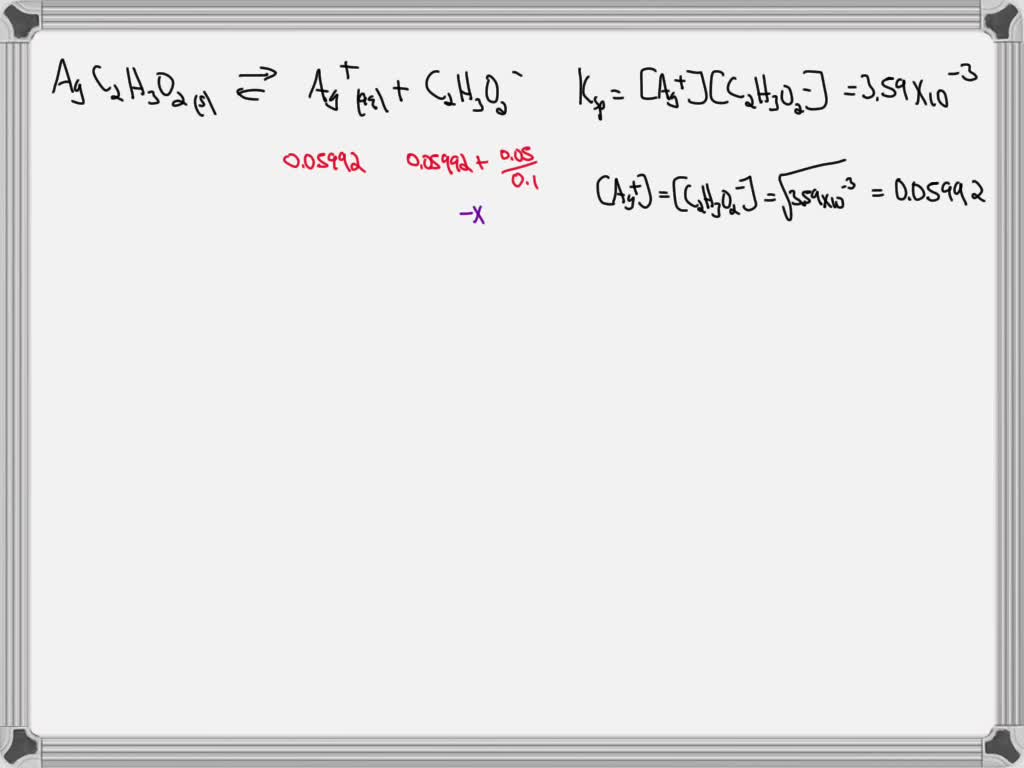 AgC₂H₃O₂(s) ⇌ Ag⁺(aq) + C₂H₃O₂⁻ Ksp = [Ag⁺][C₂H₃O₂⁻] = 3.59×10⁻³
0.05992 0.05992 + 0.05/0.1
[Ag⁺] = [C₂H₃O₂⁻] = √3.59×10⁻³ = 0.05992
-x